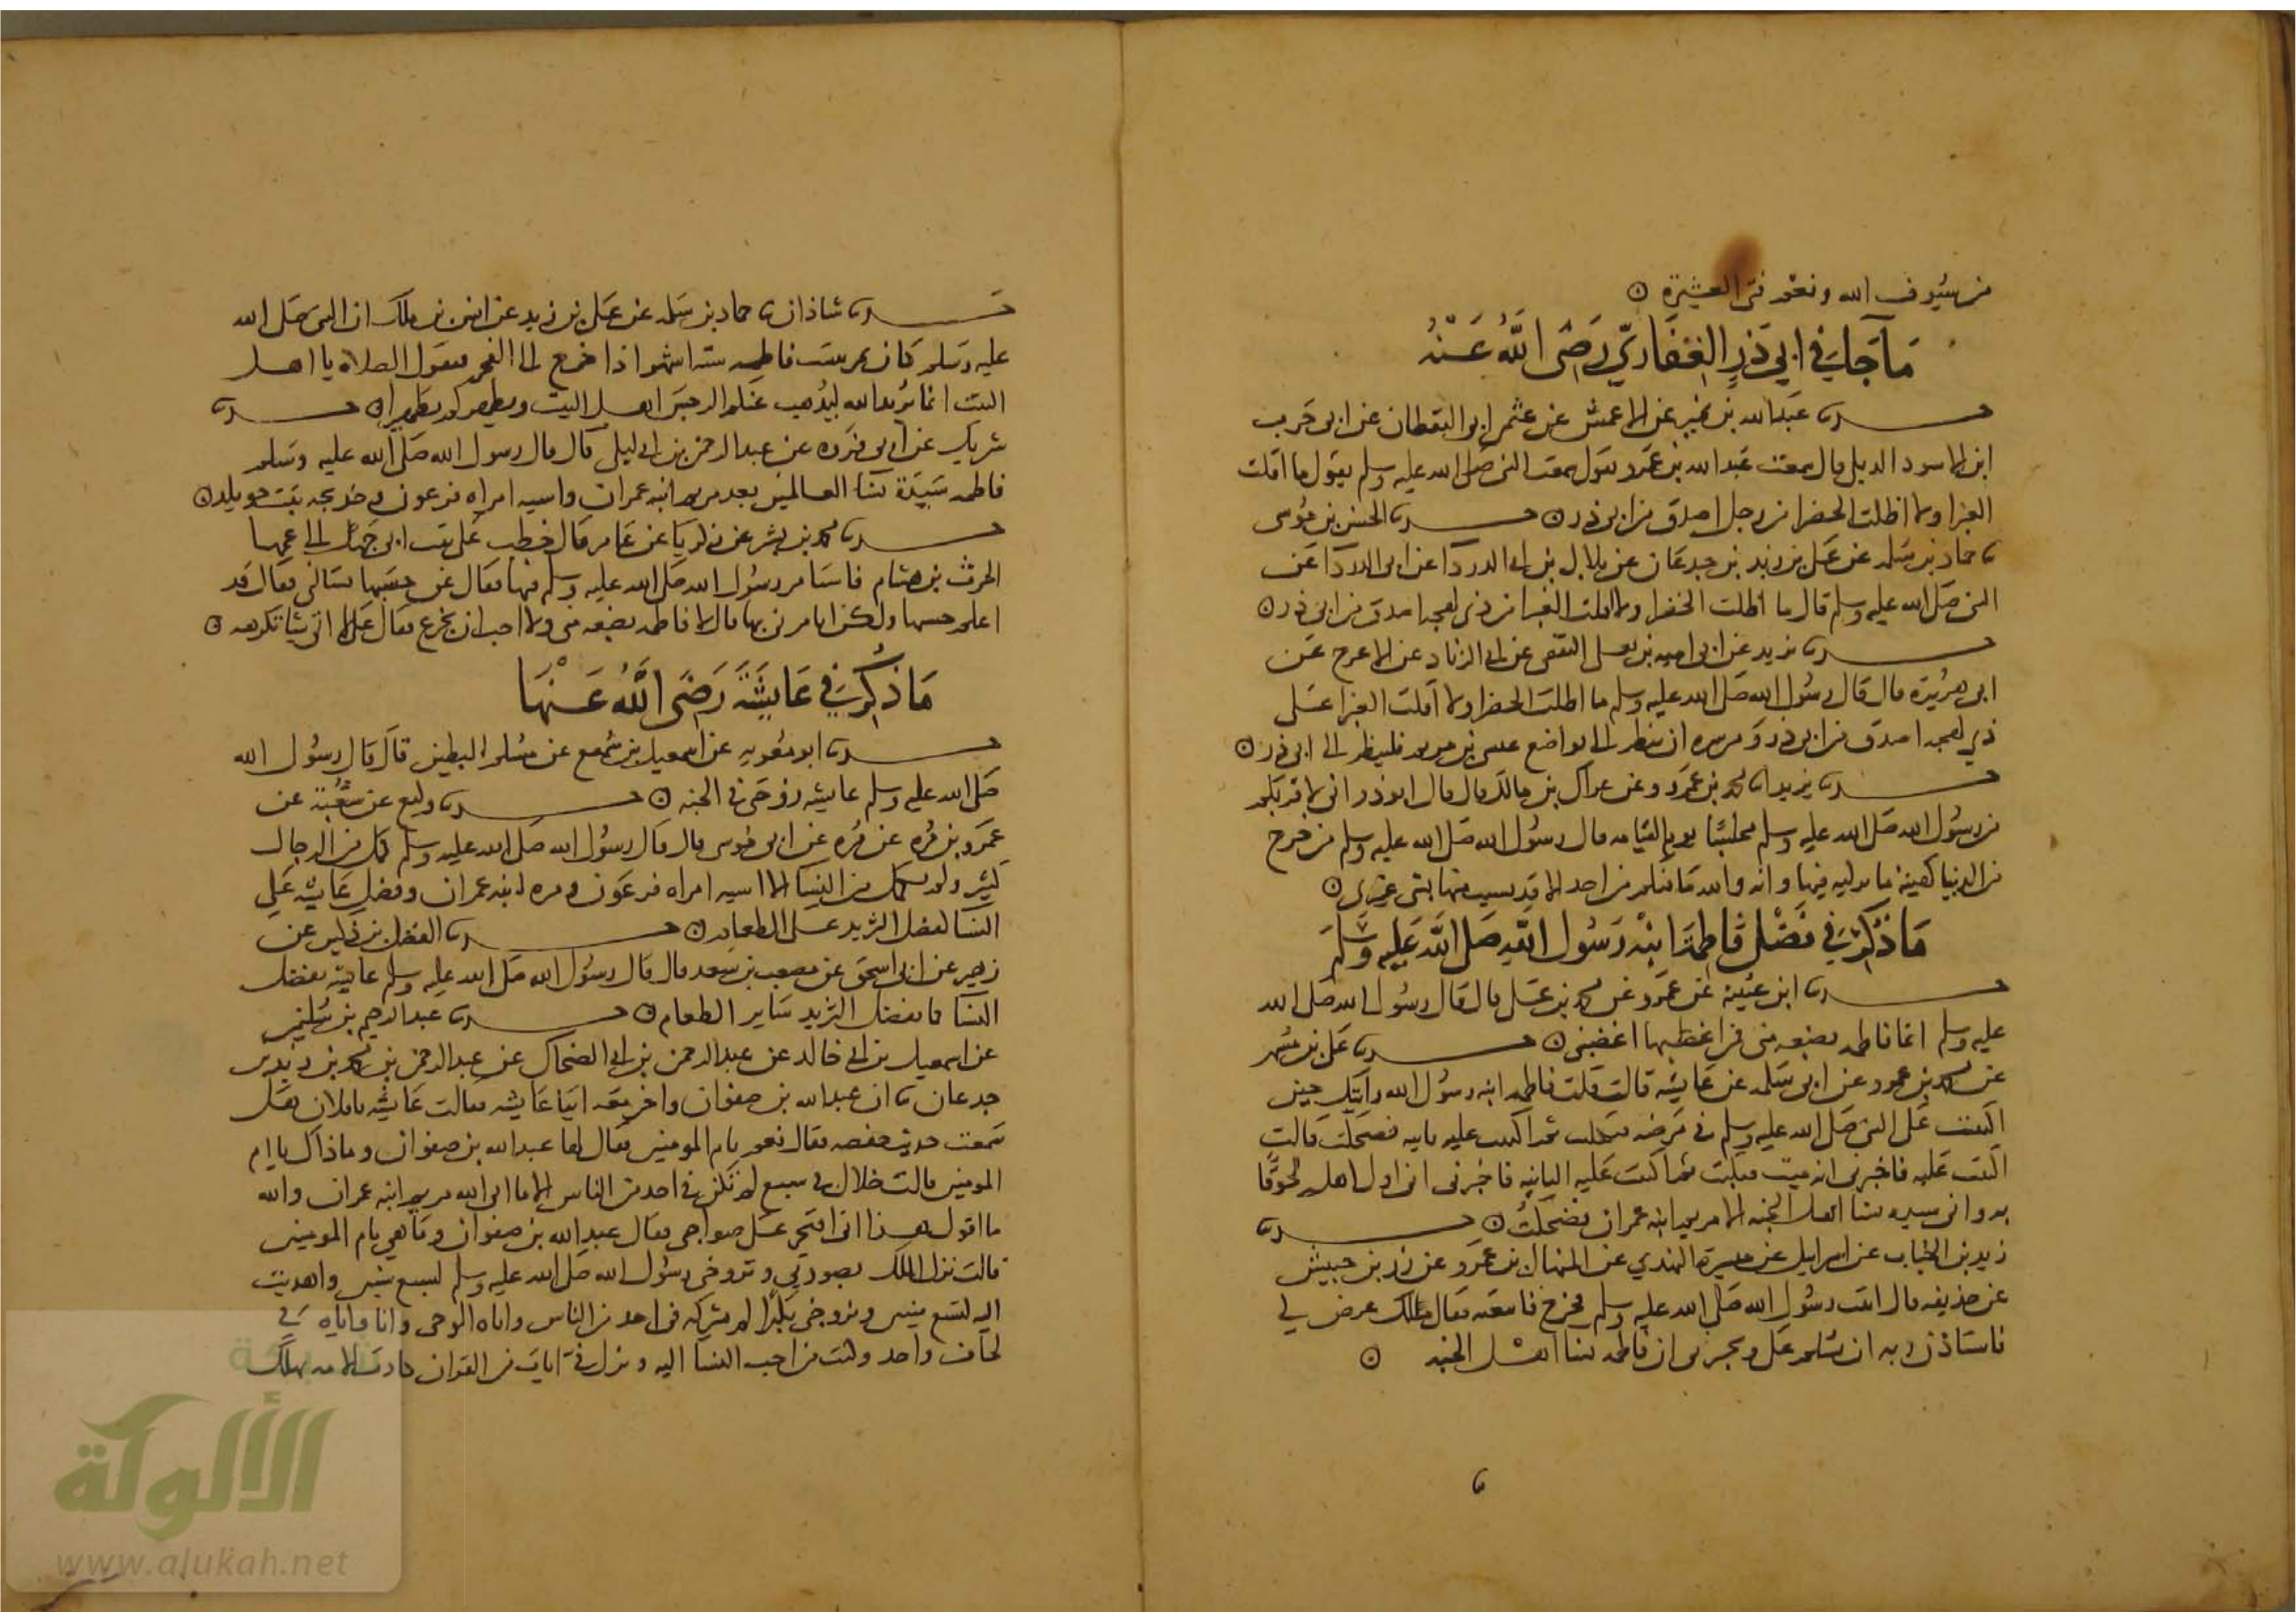 من سيوف الله ونعم فتى العشيرة ۞
ما جاء في ابي ذر الغفاري رضي الله عنه
حدثنا عبد الله بن نمير عن الاعمش عن عثمن ابى اليقطان عن ابى حرب
ابن الاسود الديلي قال سمعت عبد الله بن عمرو يقول سمعت النبي صلى الله عليه وسلم يقول ما اقلت
الغبرا ولا اظلت الخضرا من رجل اصدق من ابى ذر ۞ حدثنا الحسن بن موسى
ثنا حماد بن سلمه عن على بن زيد بن جدعان عن بلال بن ابى الدردا عن ابى الدردا عن
النبى صلى الله عليه وسلم قال ما اظلت الخضرا ولا اقلت الغبرا من ذى لهجه اصدق من ابى ذر ۞
حدثنا يزيد عن ابى اميه بن يعلى الثقفى عن ابى الزناد عن الاعرج عن
ابى هريرة قال قال رسول الله صلى الله عليه وسلم ما اظلت الخضرا ولا اقلت الغبرا على
ذي لهجه اصدق من ابى ذر ومن سره ان ينظر الى تواضع عيسى بن مريم فلينظر الى ابى ذر ۞
حدثنا يزيد انا محمد بن عمرو وعن عراك بن مالك قال قال ابو ذر انى لاقربكم
من رسول الله صلى الله عليه وسلم مجلسا يوم القيامه قال رسول الله صلى الله عليه وسلم من خرج
من الدنيا كهيئة ما تركته فيها وانه والله ما منكم من احد الا قد تسبب منها بشى غيرى ۞
ما ذكر في فضل فاطمة ابنه رسول الله صلى الله عليه وسلم
حدثنا ابن عيينة عن عمرو عن محمد بن على قال قال رسول الله صلى الله
عليه وسلم انما فاطمه بضعه منى فمن اغضبها اغضبنى ۞ حدثنا على بن مسهر
عن محمد بن عمرو عن ابى سلمه عن عايشه قالت قلت لفاطمه ابنه رسول الله رايتك حين
اكببت على النبى صلى الله عليه وسلم في مرضه فبكيت ثم اكببت عليه ثانيه فضحكت قالت
اكببت عليه فاخبرنى انه ميت فبكيت ثم اكببت عليه الثانيه فاخبرنى انى اول اهله لحوقا
به وانى سيده نسا اهل الجنه الا مريم ابنه عمران فضحكت ۞ حدثنا
زيد بن الحباب عن اسرايل عن ميسرة النهدي عن المنهال بن عمرو عن زر بن حبيش
عن حذيفه قال اتيت رسول الله صلى الله عليه وسلم فخرج فاتبعته فقال ملك عرض لي
فاستاذن ربه ان يسلم على ويخبرنى ان فاطمه سيدة نسا اهل الجنه ۞
حدثنا شاذان ثنا حماد بن سلمه عن على بن زيد عن انس بن ملك ان النبى صلى الله
عليه وسلم كان يمر ببيت فاطمه ستة اشهر اذا خرج الى الفجر فيقول الصلاه يا اهل
البيت انما يريد الله ليذهب عنكم الرجس اهل البيت ويطهركم تطهيرا ۞ حدثنا
شريك عن ابى فروه عن عبد الرحمن بن ابى ليلى قال قال رسول الله صلى الله عليه وسلم
فاطمه سيدة نسا العالمين بعد مريم ابنه عمران واسيه امراه فرعون وخديجه بنت خويلد ۞
حدثنا محمد بن بشر عن زكريا عن عامر قال خطب على بنت ابى جهل الى عمها
الحرث بن هشام فاستامر رسول الله صلى الله عليه وسلم فيها فقال عن حسبها تسالنى فقال قد
اعلم حسبها ولكن اتامرنى بها قال لا فاطمه بضعه منى ولا احب ان تجزع فقال على لا اتى شيا تكرهه ۞
ما ذكر في عايشة رضي الله عنها
حدثنا ابو معويه عن اسمعيل بن سميع عن مسلم البطين قال قال رسول الله
صلى الله عليه وسلم عايشه زوجتى في الجنه ۞ حدثنا وكيع عن شعبة عن
عمرو بن مره عن مره عن ابى موسى قال قال رسول الله صلى الله عليه وسلم كمل من الرجال
كثير ولم يكمل من النسا الا اسيه امراه فرعون ومريم ابنه عمران وفضل عايشه على
النسا كفضل الثريد على الطعام ۞ حدثنا الفضل بن دكين عن
زهير عن ابى اسحق عن مصعب بن سعد قال قال رسول الله صلى الله عليه وسلم عايشه تفضل
النسا كما يفضل الثريد ساير الطعام ۞ حدثنا عبد الرحيم بن سليمن
عن اسمعيل بن ابى خالد عن عبد الرحمن بن ابى الضحاك عن عبد الرحمن بن محمد بن زيد بن
جدعان ثنا ان عبد الله بن صفوان واخر معه اتيا عايشه فقالت عايشه يا فلان هل
سمعت حديث حفصه فقال نعم يا ام المومنين فقال لها عبد الله بن صفوان وما ذاك يا ام
المومنين قالت خلال في سبع لم تكن في احد من الناس الا ما اتى الله مريم ابنه عمران والله
ما اقول هذا انى افتخر على صواحبى فقال عبد الله بن صفوان وما هى يا ام المومنين
قالت نزل الملك بصورتي وتزوجنى رسول الله صلى الله عليه وسلم لسبع سنين واهديت
اليه لتسع سنين وتزوجنى بكرا لم يشركه في احد من الناس واتاه الوحى وانا واياه في
لحاف واحد وكنت من احب النسا اليه ونزل في ايات من القران كادت الامه تهلك
الألوكة
www.alukah.net